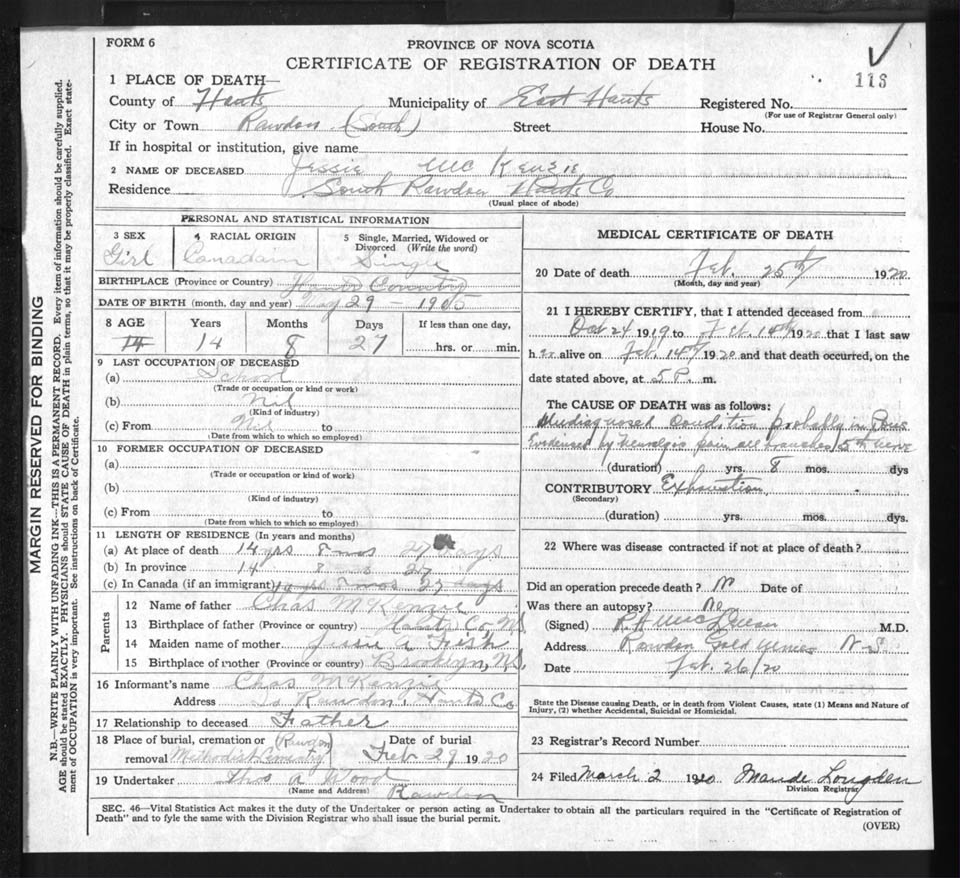 FORM 6
PROVINCE OF NOVA SCOTIA
CERTIFICATE OF REGISTRATION OF DEATH
113
1 PLACE OF DEATH—
County of Hants Municipality of East Hants Registered No.
(For use of Registrar General only)
City or Town Rawdon (South) Street House No.
If in hospital or institution, give name
2 NAME OF DECEASED Jessie McKenzie
Residence South Rawdon Hants Co
(Usual place of abode)
PERSONAL AND STATISTICAL INFORMATION
3 SEX
Girl
4 RACIAL ORIGIN
Canadain
5 Single, Married, Widowed or Divorced (Write the word)
Single
BIRTHPLACE (Province or Country) Hants County
DATE OF BIRTH (month, day and year) 29 - 1905
8 AGE Years Months Days If less than one day,
14 14 8 27 hrs. or min.
9 LAST OCCUPATION OF DECEASED
(a) School
(Trade or occupation or kind or work)
(b) Nil
(Kind of industry)
(c) From Nil to
(Date from which to which so employed)
10 FORMER OCCUPATION OF DECEASED
(a)
(Trade or occupation or kind of work)
(b)
(Kind of industry)
(c) From to
(Date from which to which so employed)
11 LENGTH OF RESIDENCE (In years and months)
(a) At place of death 14 yrs 8 mos 27 days
(b) In province 14 8 27
(c) In Canada (if an immigrant) 27 days
Parents
12 Name of father Chas McKenzie
13 Birthplace of father (Province or country) Hants Co, N.S.
14 Maiden name of mother Fish
15 Birthplace of mother (Province or country) Brooklyn, N.S.
16 Informant's name Chas McKenzie
Address So Rawdon, Hants Co
17 Relationship to deceased Father
18 Place of burial, cremation or removal (Rawdon) Methodist Cemetry Date of burial Feb 29 1920
19 Undertaker Thos A Wood
(Name and Address) Rawdon
MEDICAL CERTIFICATE OF DEATH
20 Date of death Feb. 25th 1920
(Month, day and year)
21 I HEREBY CERTIFY, that I attended deceased from
Oct 24 1919 to Feb. 14th 1920 that I last saw
her alive on Feb. 14th 1920 and that death occurred, on the
date stated above, at 5 P. m.
The CAUSE OF DEATH was as follows:
Undiagnosed Condition probably in Pons
Evidenced by Neuralgic pain all branches 5th nerve
(duration) yrs. 8 mos. dys
CONTRIBUTORY Exhaustion
(Secondary)
(duration) yrs. mos. dys.
22 Where was disease contracted if not at place of death?
Did an operation precede death? N Date of
Was there an autopsy? No
(Signed) M.D.
Address Rawdon Gold Mines N-S.
Date Feb. 26/20
State the Disease causing Death, or in death from Violent Causes, state (1) Means and Nature of Injury, (2) whether Accidental, Suicidal or Homicidal.
23 Registrar's Record Number
24 Filed March 2 1920 Maude Longden
Division Registrar
SEC. 46—Vital Statistics Act makes it the duty of the Undertaker or person acting as Undertaker to obtain all the particulars required in the "Certificate of Registration of
Death" and to fyle the same with the Division Registrar who shall issue the burial permit.
(OVER)
MARGIN RESERVED FOR BINDING
N.B.—WRITE PLAINLY WITH UNFADING INK—THIS IS A PERMANENT RECORD. Every item of information should be carefully supplied.
AGE should be stated EXACTLY. PHYSICIANS should STATE CAUSE OF DEATH in plain terms, so that it may be properly classified. Exact statement of OCCUPATION is very important. See instructions on back of Certificate.